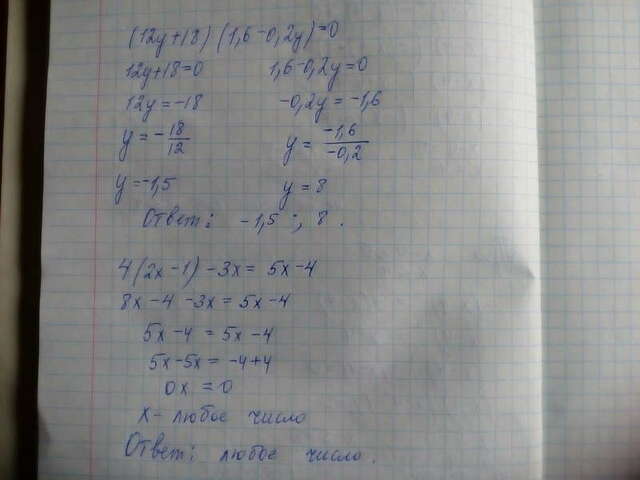 (12y+18)(1,6-0,2y)=0
12y+18=0 1,6-0,2y=0
12y=-18 -0,2y=-1,6
y=-18/12 y=-1,6/-0,2
y=-1,5 y=8
Ответ: -1,5; 8.
4(2x-1)-3x=5x-4
8x-4-3x=5x-4
5x-4=5x-4
5x-5x=-4+4
0x=0
x- любое число
Ответ: любое число.